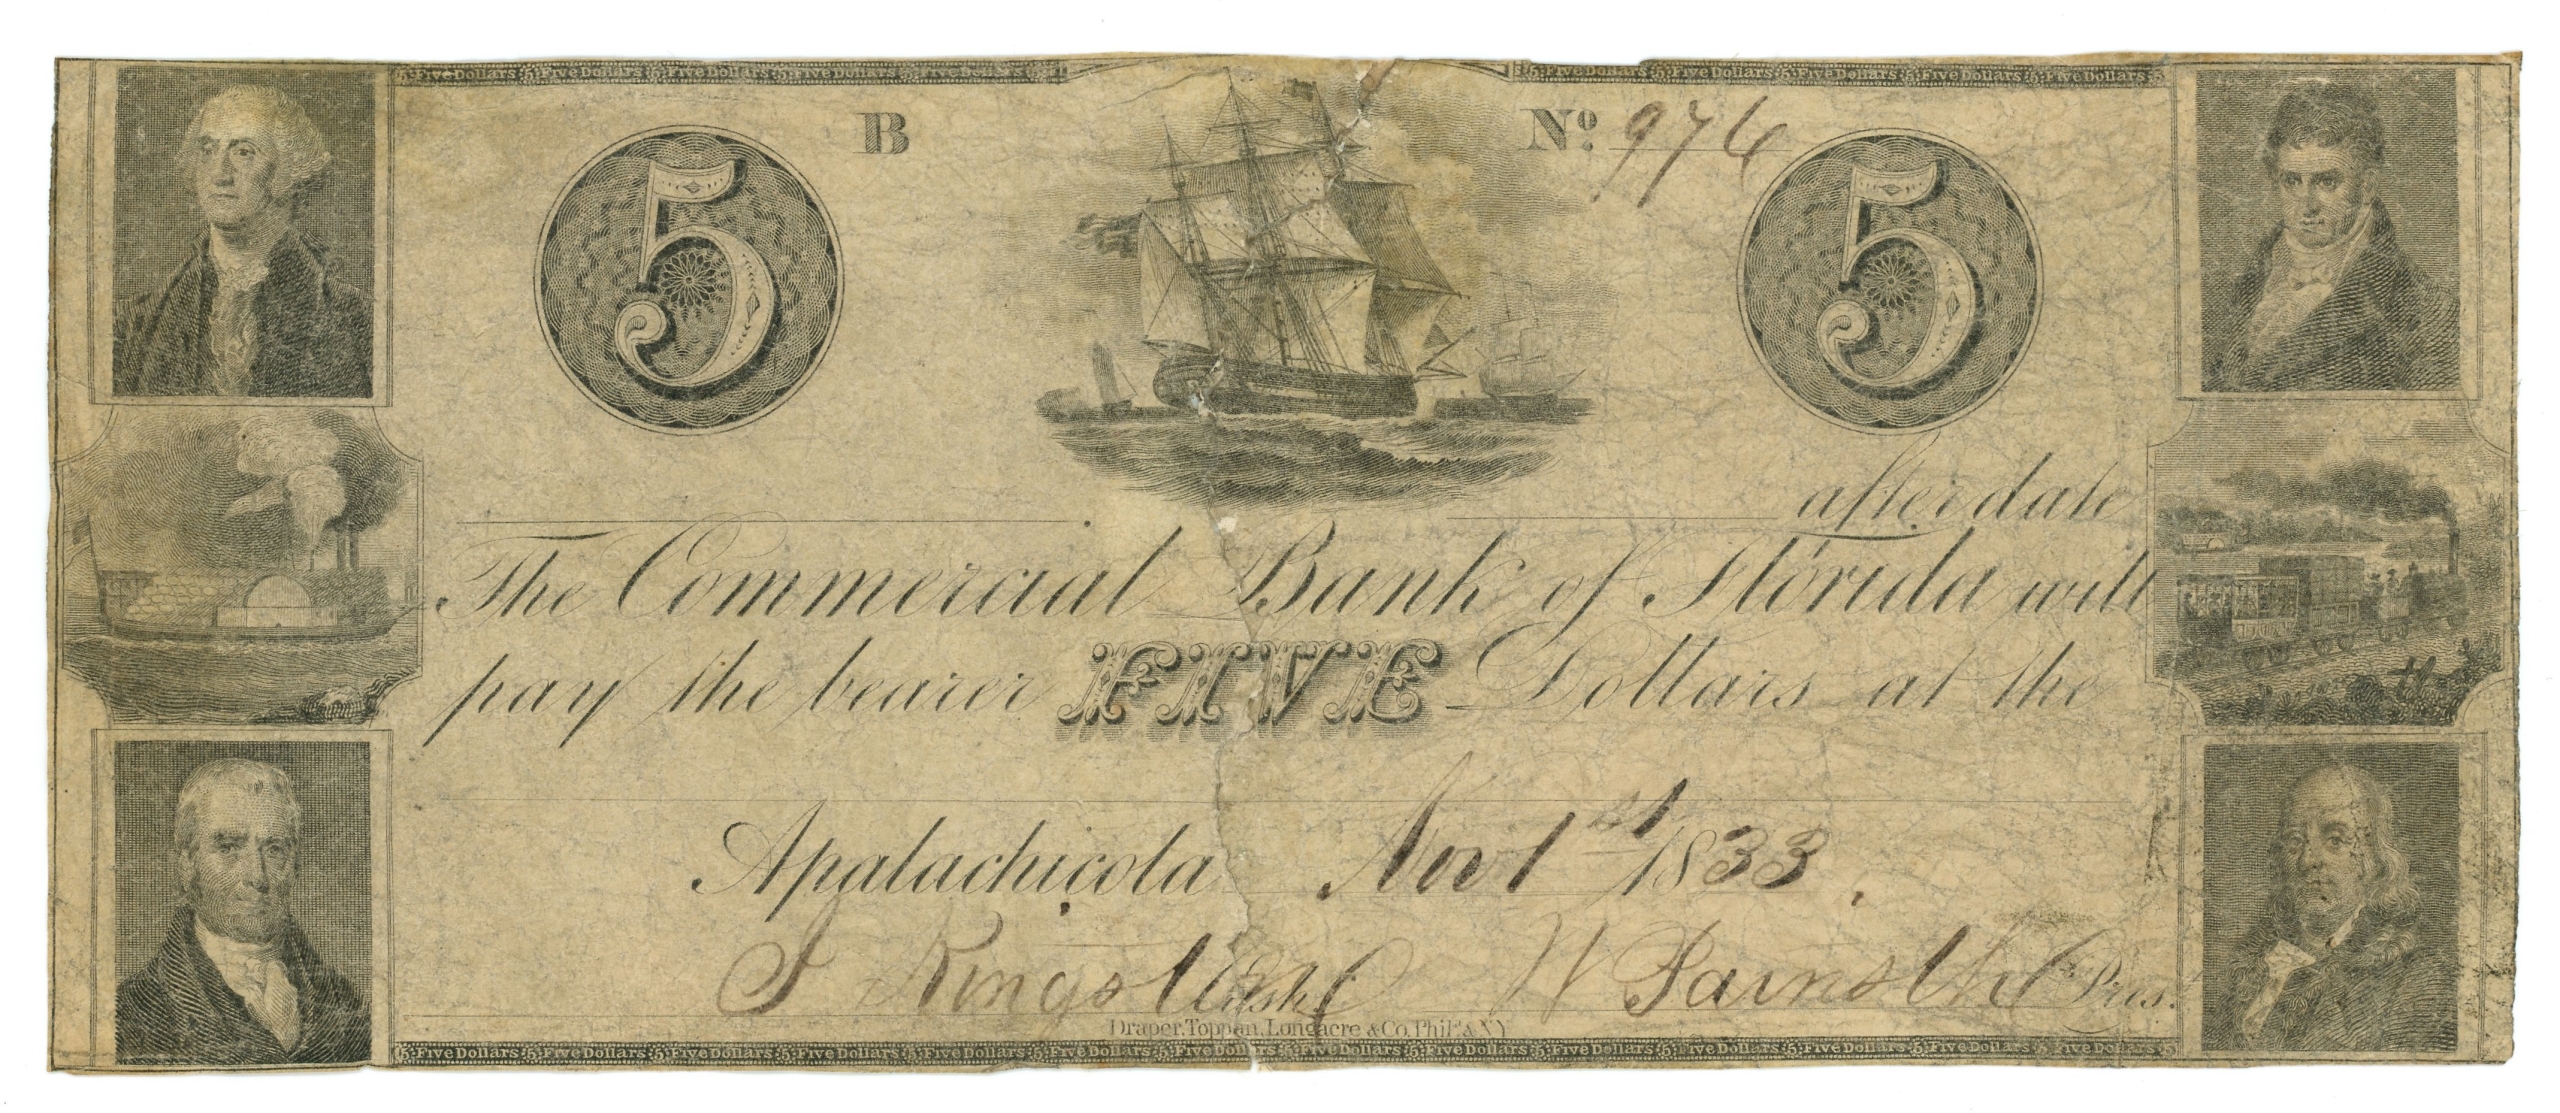 5 Five Dollars 5 Five Dollars 5 Five Dollars 5 Five Dollars 5 Five Dollars 5
5 Five Dollars 5 Five Dollars 5 Five Dollars 5 Five Dollars 5 Five Dollars 5
B
No. 976
5
5
after date
The Commercial Bank of Florida will
pay the bearer FIVE Dollars at the
Apalachicola Nov 1st 1833.
J Kings Cash.
W Pres.
Draper, Toppan, Longacre & Co. Phila. & N.Y
5 Five Dollars 5 Five Dollars 5 Five Dollars 5 Five Dollars 5 Five Dollars 5 Five Dollars 5 Five Dollars 5 Five Dollars 5 Five Dollars 5 Five Dollars 5 Five Dollars 5 Five Dollars 5 Five Dollars 5 Five Dollars 5